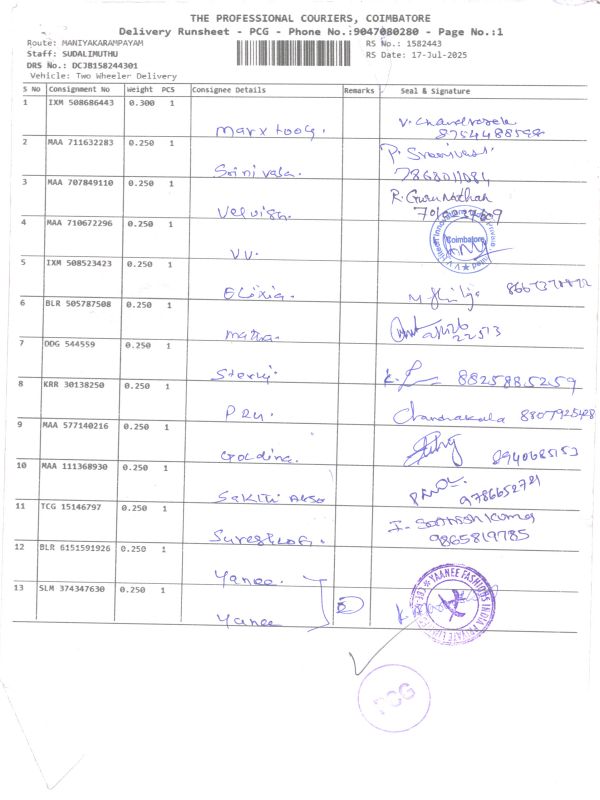 THE PROFESSIONAL COURIERS, COIMBATORE
Delivery Runsheet - PCG - Phone No.:9047080280 - Page No.:1
Route: MANIYAKARAMPAYAM RS No.: 1582443
Staff: SUDALIMUTHU RS Date: 17-Jul-2025
DRS No.: DCJB158244301
Vehicle: Two Wheeler Delivery
S No Consignment No Weight PCS Consignee Details Remarks Seal & Signature
1 IXM 508686443 0.300 1
Marx tools. V. Chandrasek
2 MAA 711632283 0.250 1 P. Srinivas
Srinivasa. 7868011081
3 MAA 707849110 0.250 1 R. Gurunathan
4 MAA 710672296 0.250 1 Coimbatore
V.V.
5 IXM 508523423 0.250 1
Elixia.
6 BLR 505787508 0.250 1
22513
7 DDG 544559 0.250 1
8825885259
8 KRR 30138250 0.250 1
PRU. Chandrakala 8807925428
9 MAA 577140216 0.250 1
Goldina. 8940685153
10 MAA 111368930 0.250 1
Sakthi 9786652781
11 TCG 15146797 0.250 1 I. Santhosh Kumar
9865819785
12 BLR 6151591926 0.250 1
Yanee.
13 SLM 374347630 0.250 1 YAANEE FASHIONS INDIA PRIVATE
Yanee
PCG